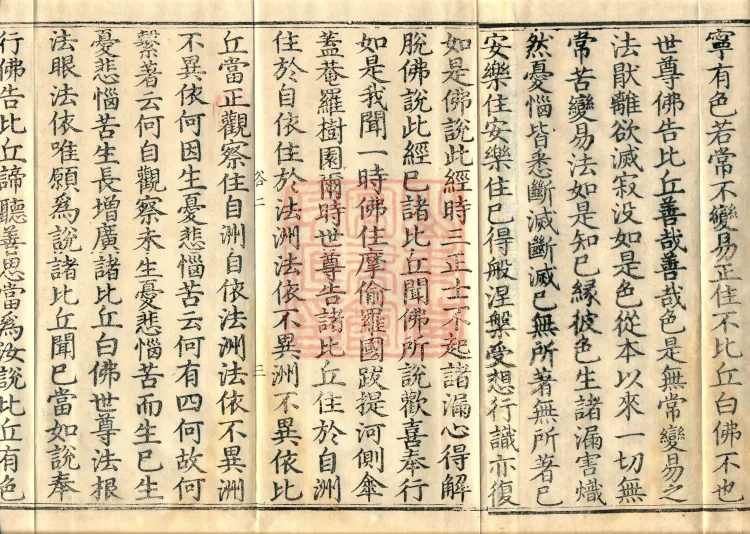 寧有色若常不變易正住不比丘白佛不也
世尊佛告比丘善哉善哉色是無常變易之
法猒離欲滅寂没如是色從本以來一切無
常苦變易法如是知已縁彼色生諸漏害熾
然憂惱皆悉斷滅斷滅已無所著無所著已
安樂住安樂住已得般涅槃受想行識亦復
如是佛說此經時三正士不起諸漏心得解
脫佛說此經已諸比丘聞佛所說歡喜奉行
如是我聞一時佛住摩偷羅國跋提河側傘
蓋菴羅樹園爾時世尊告諸比丘住於自洲
住於自依住於法洲法依不異洲不異依比
谷二
三
丘當正觀察住自洲自依法洲法依不異洲
不異依何因生憂悲惱苦云何有四何故何
繫著云何自觀察未生憂悲惱苦而生已生
憂悲惱苦生長增廣諸比丘白佛世尊法根
法眼法依唯願爲說諸比丘聞已當如說奉
行佛告比丘諦聽善思當爲汝說比丘有色